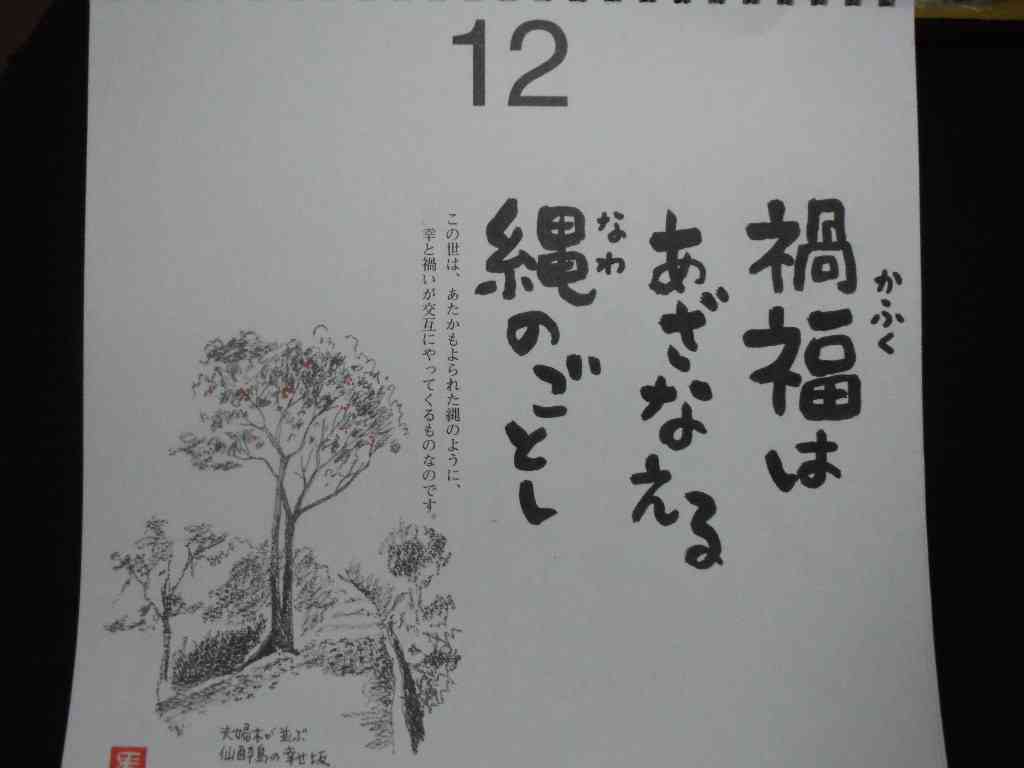 12
かふく
禍福は
あざなえる
なわ
縄のごとし
この世は、あたかもよられた縄のように、
幸と禍いが交互にやってくるものなのです。
夫婦木が並ぶ
仙酔島の幸せ坂